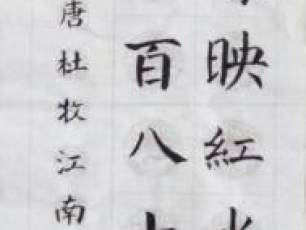 映紅水
百八十
唐杜牧江南